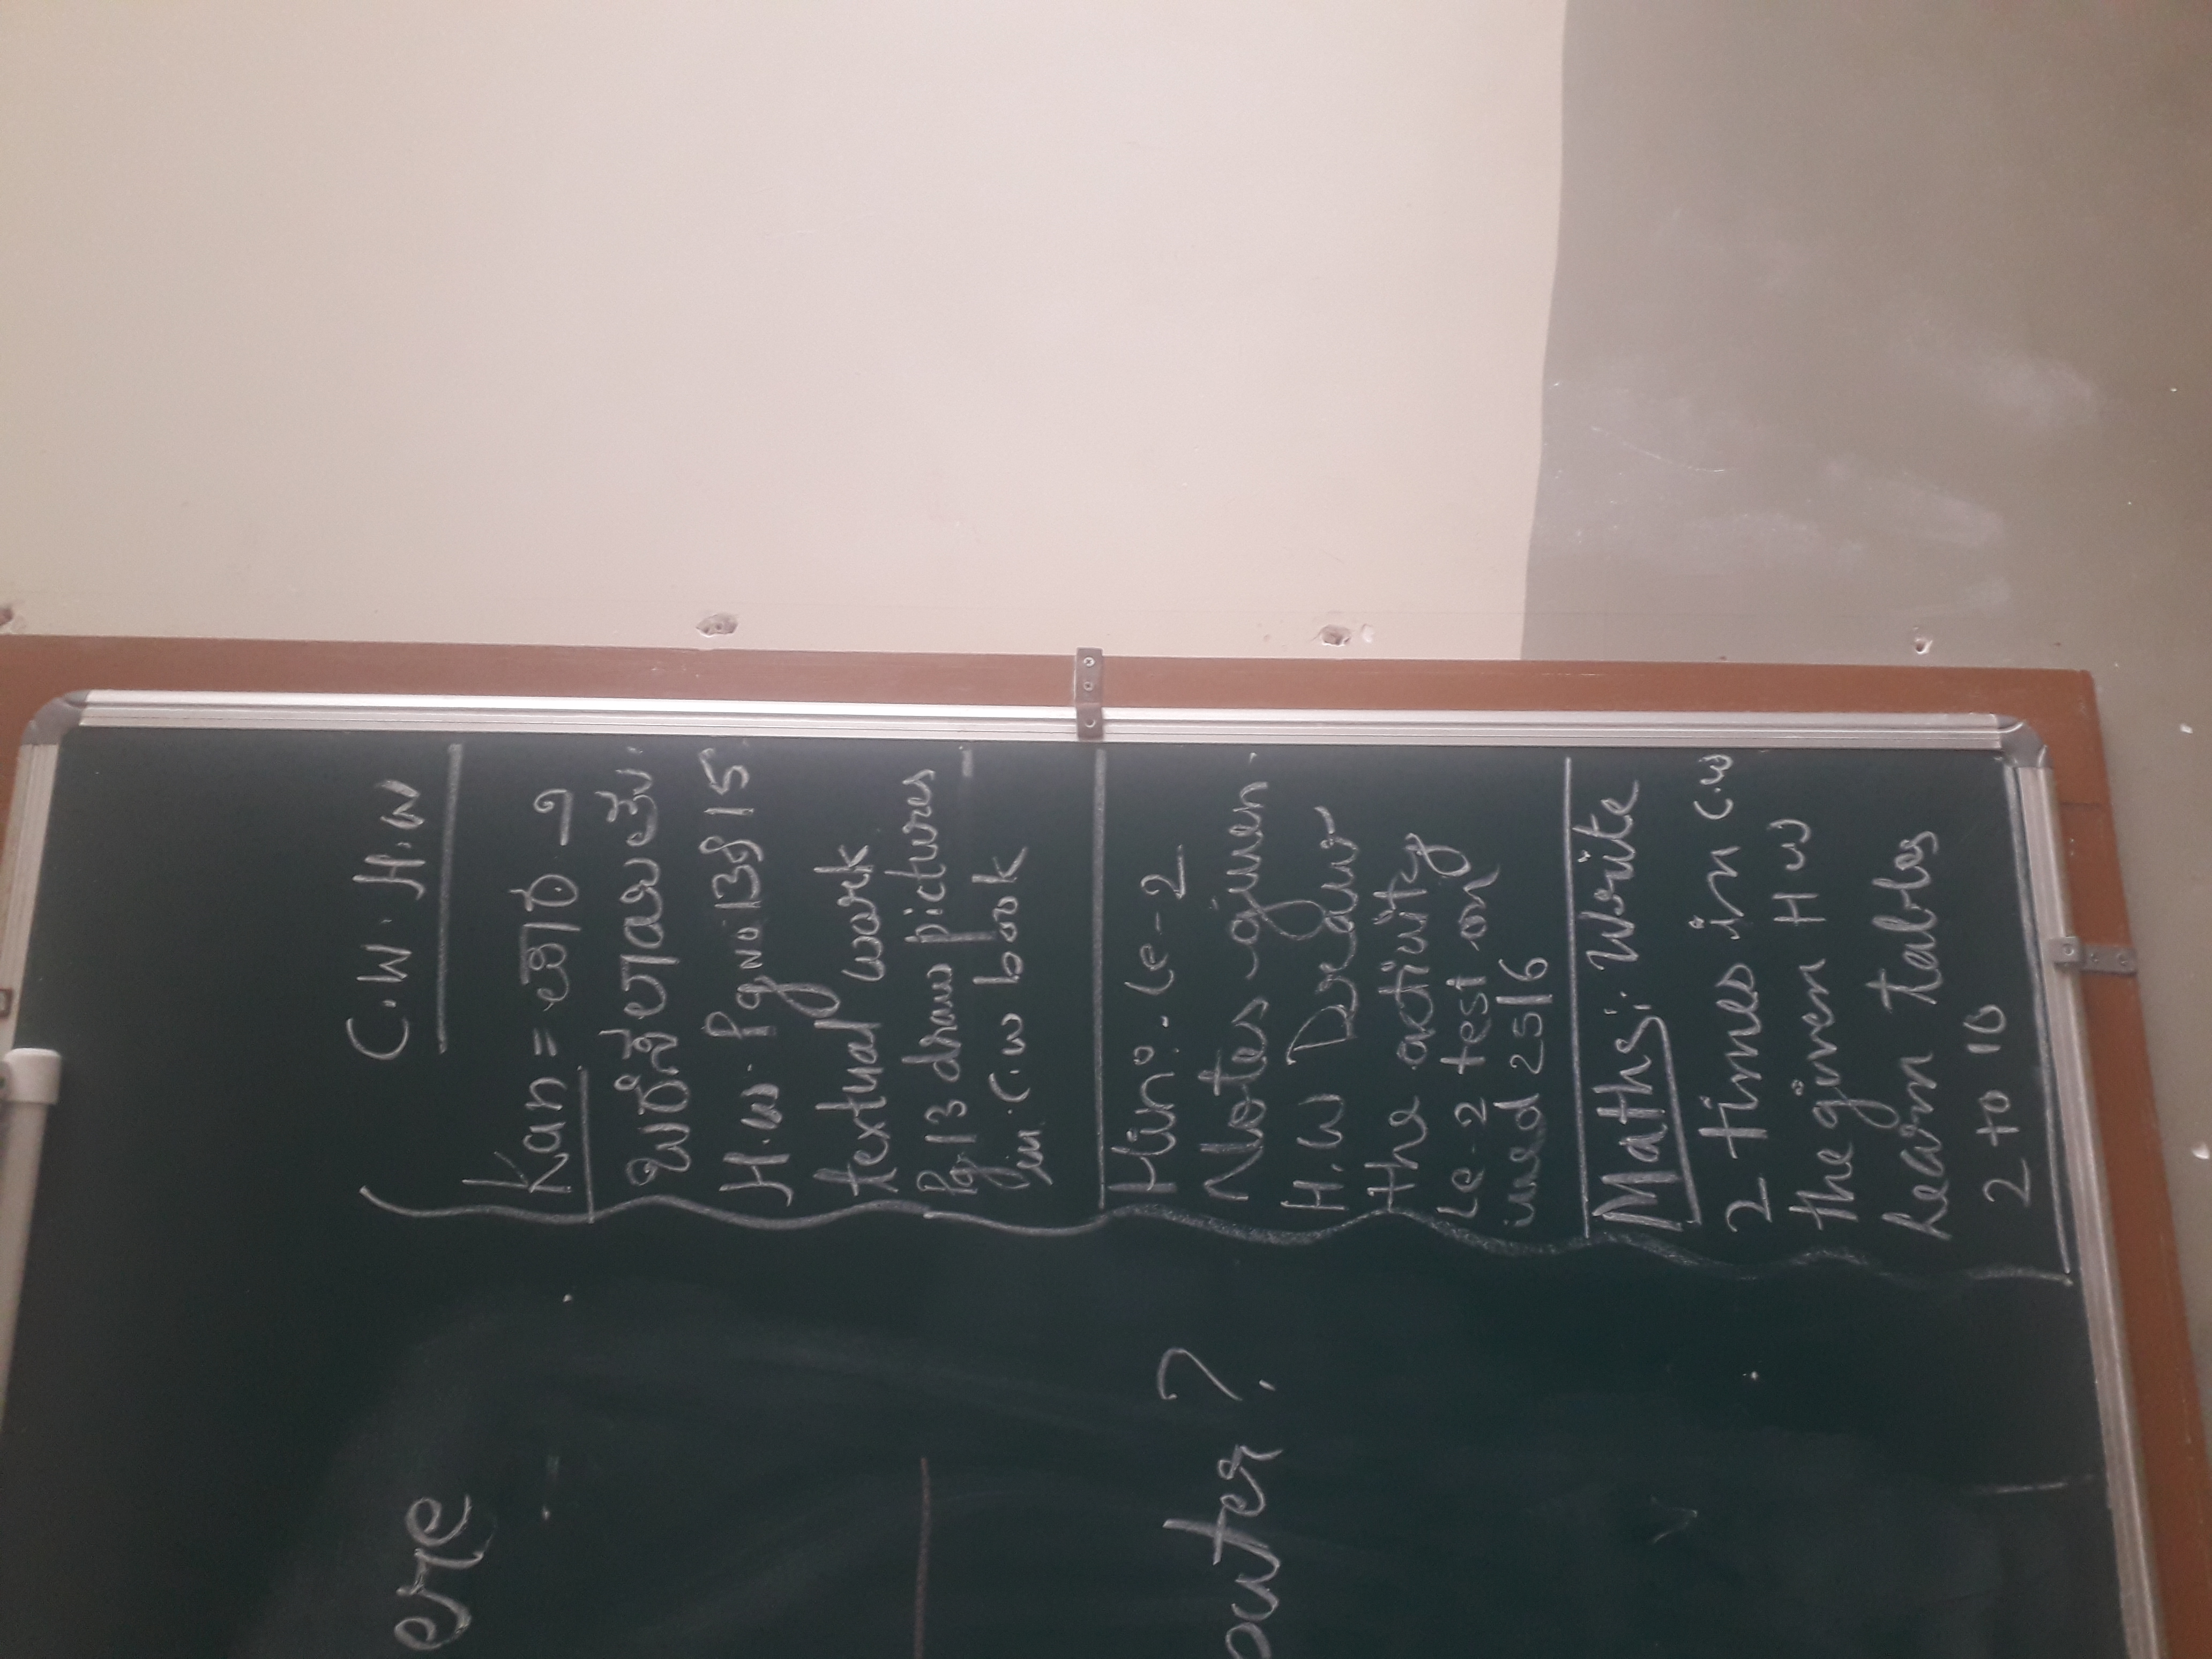 ere
outer ?
C.W. H.W
Kan = ಪಾಠ - ೧
H.W. Pg no 13 & 15.
textual work
Pg 13 draw pictures
in C.W book
Hin: Le-2
Notes given.
H.W Draw
the activity
Le-2 test on
wed 25/6
Maths: Write
2 times in C.W
the given H W
Learn tables
2 to 10